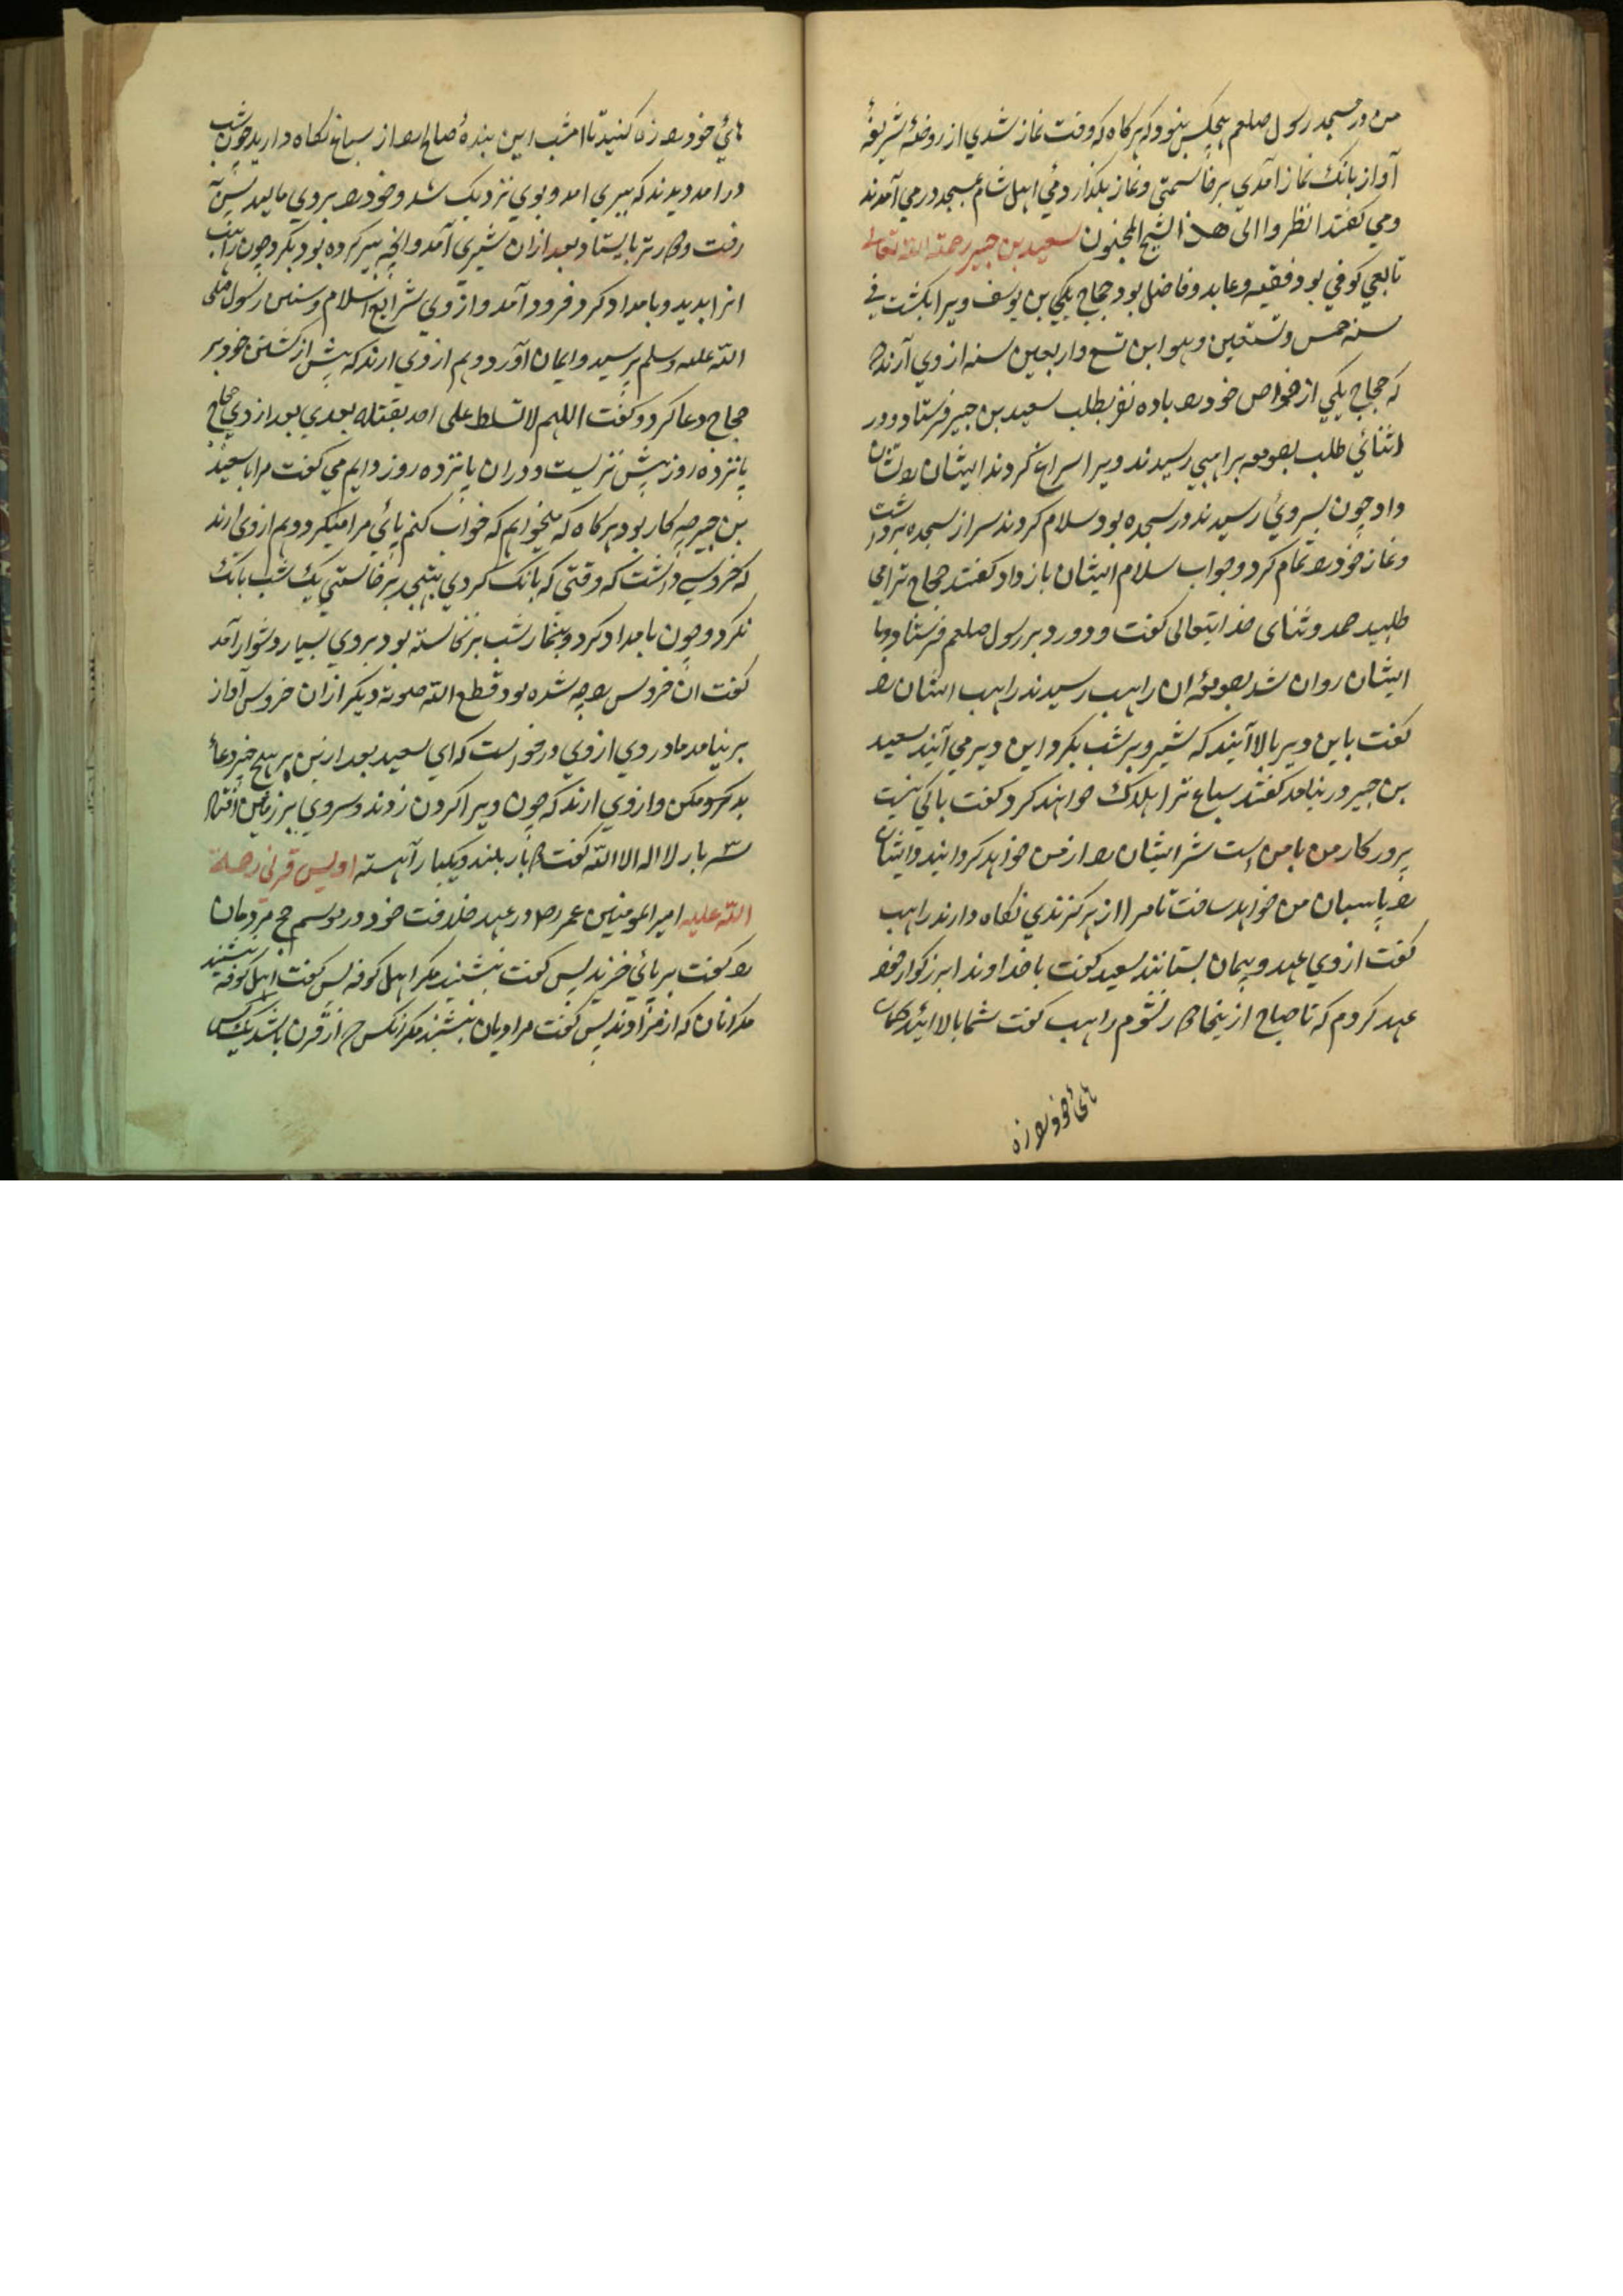 من در مسجد رسول صلعم هیچکس نبود و که هر کاه که وقت نماز شدی از روضهٔ شریفهٔ
آواز بانک نماز آمدی برخاستمی و نماز بکذاردمی اهل شام بمسجد در می آمدند
و می کفتند انظروا الی هذا الشیخ المجنون سعید بن جبیر رحمة الله تعالی
تابعی کوفی بود فقیه و عابد و فاضل بود حجاج بن یوسف ویرا بکشت فی
سنه خمس و تسعین و هو ابن تسع و اربعین سنه از وی آرند
که حجاج یکی از خواص خود را با ده نفر بطلب سعید بن جبیر فرستاد و در
اثنائی طلب بصومعه راهبی رسیدند ویرا سراغ کردند ایشان را نشان
داد چون بسر وی رسیدند در سجده بود سلام کردند سر از سجده برداشت
و نماز خود را تمام کرد و جواب سلام ایشان باز داد کفتند حجاج ترا می
طلبد حمد و ثنای خدایتعالی کفت و درود بر رسول صلعم فرستاد و با
ایشان روان شد بصومعهٔ ان راهب رسیدند راهب ایشان را
کفت باین دیر بالا آئیند که شیر و ببر شب بکرد این دیر می آیند سعید
بن جبیر در نیامد کفتند سباع ترا هلاک خواهند کرد کفت باکی نیست
پرورکار من با من است شر ایشان را از من خواهد کردانید و ایشان
را پاسبان من خواهد ساخت تا مرا از هر کزندی نکاه دارند راهب
کفت از وی عهد و پیمان بستانند سعید کفت با خداوند بزرکوار خود
عهد کردم که تا صباح از ینجا نشوم راهب کفت شما بالا ائید و کمان
هائ خود را زه
هائ خود را زه کنید تا امشب این بندهٔ صالح را از سباع نکاه دارید چون شب
درامد دیدند که ببری امد و بوی نزدیک شد و خود را بر وی مالید پس
رفت و بایستاد بعد ازان شیری آمد و انچه ببر کرده بود بکرد چون راهب
انرا بدید و بامداد کرد فرود آمد و از وی شرایع اسلام و سنن رسول صلی
الله علیه وسلم پرسید و ایمان آورد و هم از وی ارند که پیش از کشتن خود بر
حجاج دعا کرد و کفت اللهم لا تسلط علی احد بقتله بعدی بعد از وی حجاج
پانزده روز بیش نزیست و دران پانزده روز دایم می کفت مرا با سعید
بن جبیر چه کار بود هر کاه که میخواهم که خواب کنم پائی مرا میکیرد و هم از وی ارند
که خروسی داشت که وقتی که بانک کردی بتهجد برخاستی یک شب بانک
نکرد و چون بامداد کرد و بنماز شب برنخاسته بود بر وی بسیار دشوار آمد
کفت ان خروس را چه شده بود قطع الله صوته دیکر ازان خروس آواز
بر نیامد مادر وی از وی درخواست که ای سعید بعد ازین بر هیچ چیز دعائ
بد مکن و از وی ارند که چون ویرا کردن زدند و سر وی بر زمین افتاد
سه بار لا اله الا الله کفت بار بلند و یکبار آهسته اویس قرنی رحمة
الله علیه امیر المومنین عمر رض در عهد خلافت خود در موسم حج مردمان
را کفت بر پائی خزید پس کفت بنشیند مکر اهل کوفه پس کفت اهل کوفه بنشیند
مکر انان که از مراد ند پس کفت مرادیان بنشیند مکر انکس از قرن باشد یک کس